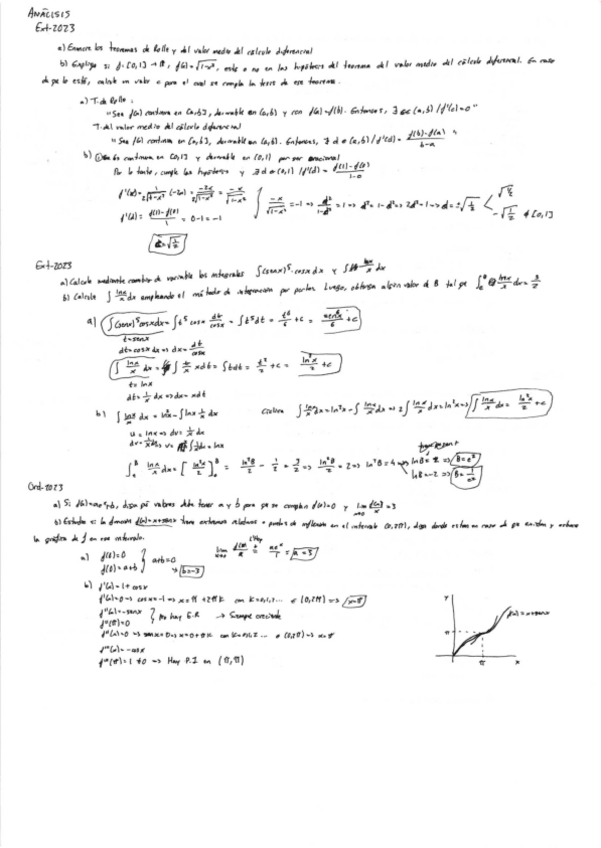 ANÁLISIS
Ext-2023
a) Enuncie los teoremas de Rolle y del valor medio del cálculo diferencial
b) Explique si f: [0,1] → ℝ, f(x)=√(1-x²), está o no en las hipótesis del teorema del valor medio del cálculo diferencial. En caso
de que lo esté, calcule un valor c para el cual se cumpla la tesis de ese teorema.
a) T. de Rolle:
"Sea f(x) continua en [a,b], derivable en (a,b) y con f(a)=f(b). Entonces, ∃ c∈(a,b) / f'(c)=0"
T. del valor medio del cálculo diferencial
"Sea f(x) continua en [a,b], derivable en (a,b). Entonces, ∃ d∈(a,b) / f'(d)= (f(b)-f(a))/(b-a)"
b) continua en [0,1] y derivable en (0,1) por ser
Por lo tanto, cumple las hipótesis y ∃ d∈(0,1) / f'(d)= (f(1)-f(0))/(1-0)
f'(x)= 1/(2√(1-x²)) (-2x) = -2x/(2√(1-x²)) = -x/√(1-x²)
f'(d)= (f(1)-f(0))/1 = 0-1=-1
-x/√(1-x²) = -1 => d²/(1-d²) = 1 => d²=1-d² => 2d²=1 => d=±√(1/2)
√(1/2)
-√(1/2) ∉ [0,1]
c=√(1/2)
Ext-2023
a) Calcule mediante cambio de variable las integrales ∫(senx)⁵·cosx dx y ∫ lnx/x dx
b) Calcule ∫ lnx/x dx empleando el método de integración por partes. Luego, obtenga algún valor de B tal que ∫ₑᴮ lnx/x dx = 3/2
a) ∫(senx)⁵cosx dx = ∫t⁵ cosx dt/cosx = ∫t⁵dt = t⁶/6 + c = sen⁶x/6 + c
t=senx
dt=cosx dx => dx= dt/cosx
∫ lnx/x dx = ∫ t/x xdt = ∫tdt = t²/2 + c = ln²x/2 + c
t=lnx
dt= 1/x dx => dx=xdt
b) ∫ lnx/x dx = ln²x - ∫lnx 1/x dx
Cíclica ∫ lnx/x dx = ln²x - ∫ lnx/x dx => 2∫ lnx/x dx = ln²x => ∫ lnx/x dx = ln²x/2 + c
u = lnx => du= 1/x dx
dv= 1/x dx => v= ∫ 1/x dx = lnx
∫ₑᴮ lnx/x dx = [ln²x/2]ₑᴮ = ln²B/2 - 1/2 = 3/2 => ln²B/2 = 2 => ln²B=4 => lnB=2 => B=e²
lnB=-2 => B= 1/e²
Ord-2023
a) Si f(x)=aeˣ+b, diga qué valores debe tener a y b para que se cumplan f(0)=0 y lim x→0 f(x)/x = 3
b) Estudie si la función f(x)=x+senx tiene extremos relativos o puntos de inflexión en el intervalo (0,2π), diga dónde están en caso de que existan y esboce
la gráfica de f en ese intervalo.
a) f(0)=0
f(0)=a+b
a+b=0
=> b=-3
lim x→0 f(x)/x = L'Hôp aeˣ/1 = a=3
b) f'(x)=1+cosx
f'(x)=0 => cosx=-1 => x=π+2πK con K=0,1,2... ∈ (0,2π) => x=π
f''(x)=-senx
f''(π)=0
No hay E.R → Siempre creciente
f''(x)=0 => senx=0 => x=0+πK con K=0,1,2... ∈ (0,2π) => x=π
f'''(x)=-cosx
f'''(π)=1≠0 => Hay P.I en (π,π)
y
f(x)=x+senx
π
π
x